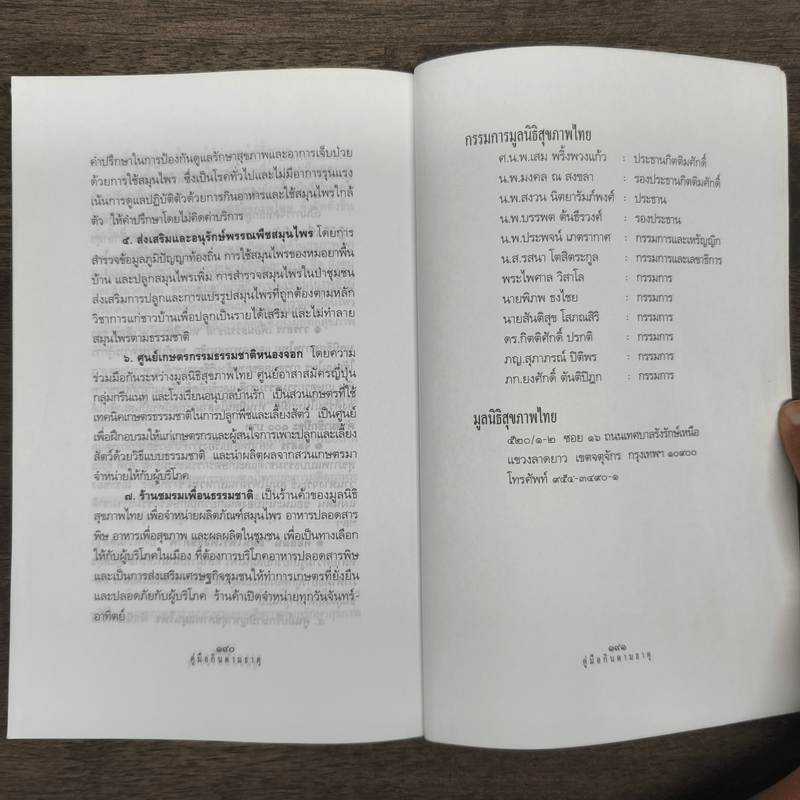 คำปรึกษาในการป้องกันดูแลรักษาสุขภาพและอาการเจ็บป่วย
ด้วยการใช้สมุนไพร ซึ่งเป็นโรคทั่วไปและไม่มีอาการรุนแรง
เน้นการดูแลปฏิบัติตัวด้วยการกินอาหารและใช้สมุนไพรใกล้
ตัว ให้คำปรึกษาโดยไม่คิดค่าบริการ
๕. ส่งเสริมและอนุรักษ์พรรณพืชสมุนไพร โดยการ
สำรวจข้อมูลภูมิปัญญาท้องถิ่น การใช้สมุนไพรของหมอยาพื้น
บ้าน และปลูกสมุนไพรเพิ่ม การสำรวจสมุนไพรในป่าชุมชน
ส่งเสริมการปลูกและการแปรรูปสมุนไพรที่ถูกต้องตามหลัก
วิชาการแก่ชาวบ้านเพื่อปลูกเป็นรายได้เสริม และไม่ทำลาย
สมุนไพรตามธรรมชาติ
๖. ศูนย์เกษตรกรรมธรรมชาติหนองจอก โดยความ
ร่วมมือกันระหว่างมูลนิธิสุขภาพไทย ศูนย์อาสาสมัครญี่ปุ่น
กลุ่มกรีนเนท และโรงเรียนอนุบาลบ้านรัก เป็นสวนเกษตรที่ใช้
เทคนิคเกษตรธรรมชาติในการปลูกพืชและเลี้ยงสัตว์ เป็นศูนย์
เพื่อฝึกอบรมให้แก่เกษตรกรและผู้สนใจการเพาะปลูกและเลี้ยง
สัตว์ด้วยวิธีแบบธรรมชาติ และนำผลิตผลจากสวนเกษตรมา
จำหน่ายให้กับผู้บริโภค
๗. ร้านชมรมเพื่อนธรรมชาติ เป็นร้านค้าของมูลนิธิ
สุขภาพไทย เพื่อจำหน่ายผลิตภัณฑ์สมุนไพร อาหารปลอดสาร
พิษ อาหารเพื่อสุขภาพ และผลผลิตในชุมชน เพื่อเป็นทางเลือก
ให้กับผู้บริโภคในเมือง ที่ต้องการบริโภคอาหารปลอดสารพิษ
และเป็นการส่งเสริมเศรษฐกิจชุมชนให้ทำการเกษตรที่ยั่งยืน
และปลอดภัยกับผู้บริโภค ร้านค้าเปิดจำหน่ายทุกวันจันทร์-
อาทิตย์
๑๙๐
คู่มือกินตามธาตุ
กรรมการมูลนิธิสุขภาพไทย
ศ.น.พ.เสม พริ้งพวงแก้ว : ประธานกิตติมศักดิ์
น.พ.มงคล ณ สงขลา : รองประธานกิตติมศักดิ์
น.พ.สงวน นิตยารัมภ์พงศ์ : ประธาน
น.พ.บรรพต ต้นธีรวงศ์ : รองประธาน
น.พ.ประพจน์ เภตรากาศ : กรรมการและเหรัญญิก
น.ส.รสนา โตสิตระกูล : กรรมการและเลขาธิการ
พระไพศาล วิสาโล : กรรมการ
นายพิภพ ธงไชย : กรรมการ
นายสันติสุข โสภณสิริ : กรรมการ
ดร.กิตติศักดิ์ ปรกติ : กรรมการ
ภญ.สุภาภรณ์ ปิติพร : กรรมการ
ภก.ยงศักดิ์ ตันติปิฎก : กรรมการ
มูลนิธิสุขภาพไทย
๕๒๐/๑-๒ ซอย ๑๖ ถนนเทศบาลรังรักษ์เหนือ
แขวงลาดยาว เขตจตุจักร กรุงเทพฯ ๑๐๙๐๐
โทรศัพท์ ๙๕๔-๓๔๙๐-๑
๑๙๑
คู่มือกินตามธาตุ